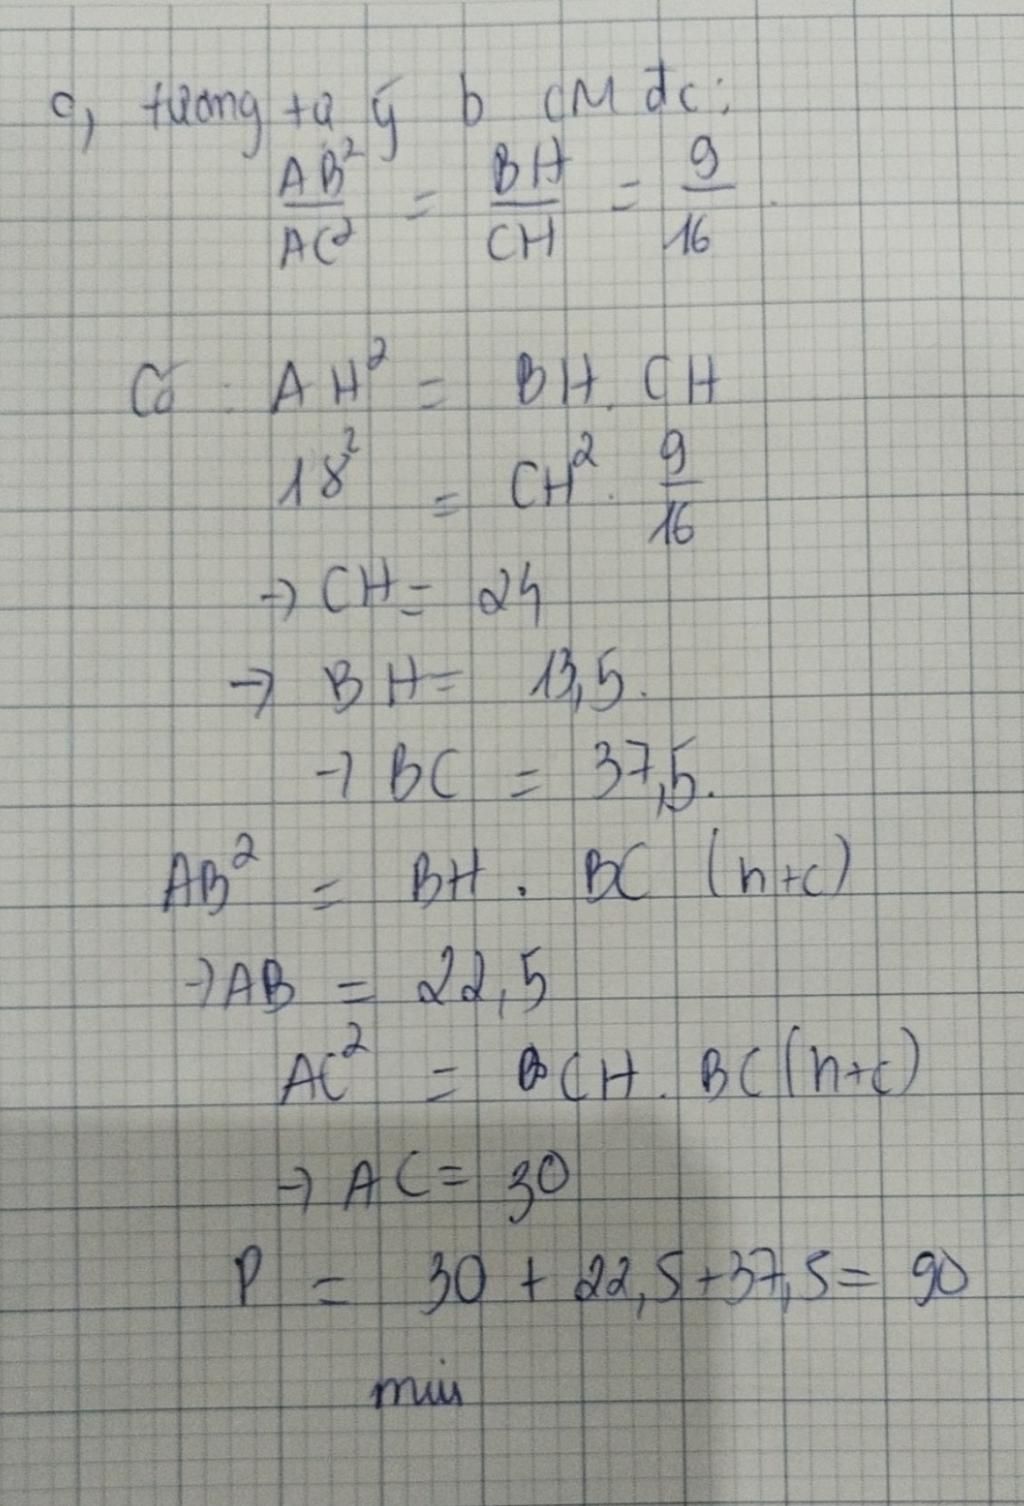 c, tương tự ý b CM đc:
AB²/AC² = BH/CH = 9/16
Có: AH² = BH. CH
18² = CH². 9/16
→ CH = 24
→ BH = 13,5.
→ BC = 37,5.
AB² = BH . BC (htc)
→ AB = 22,5
AC² = CH. BC (htc)
→ AC = 30
P = 30 + 22,5 + 37,5 = 90